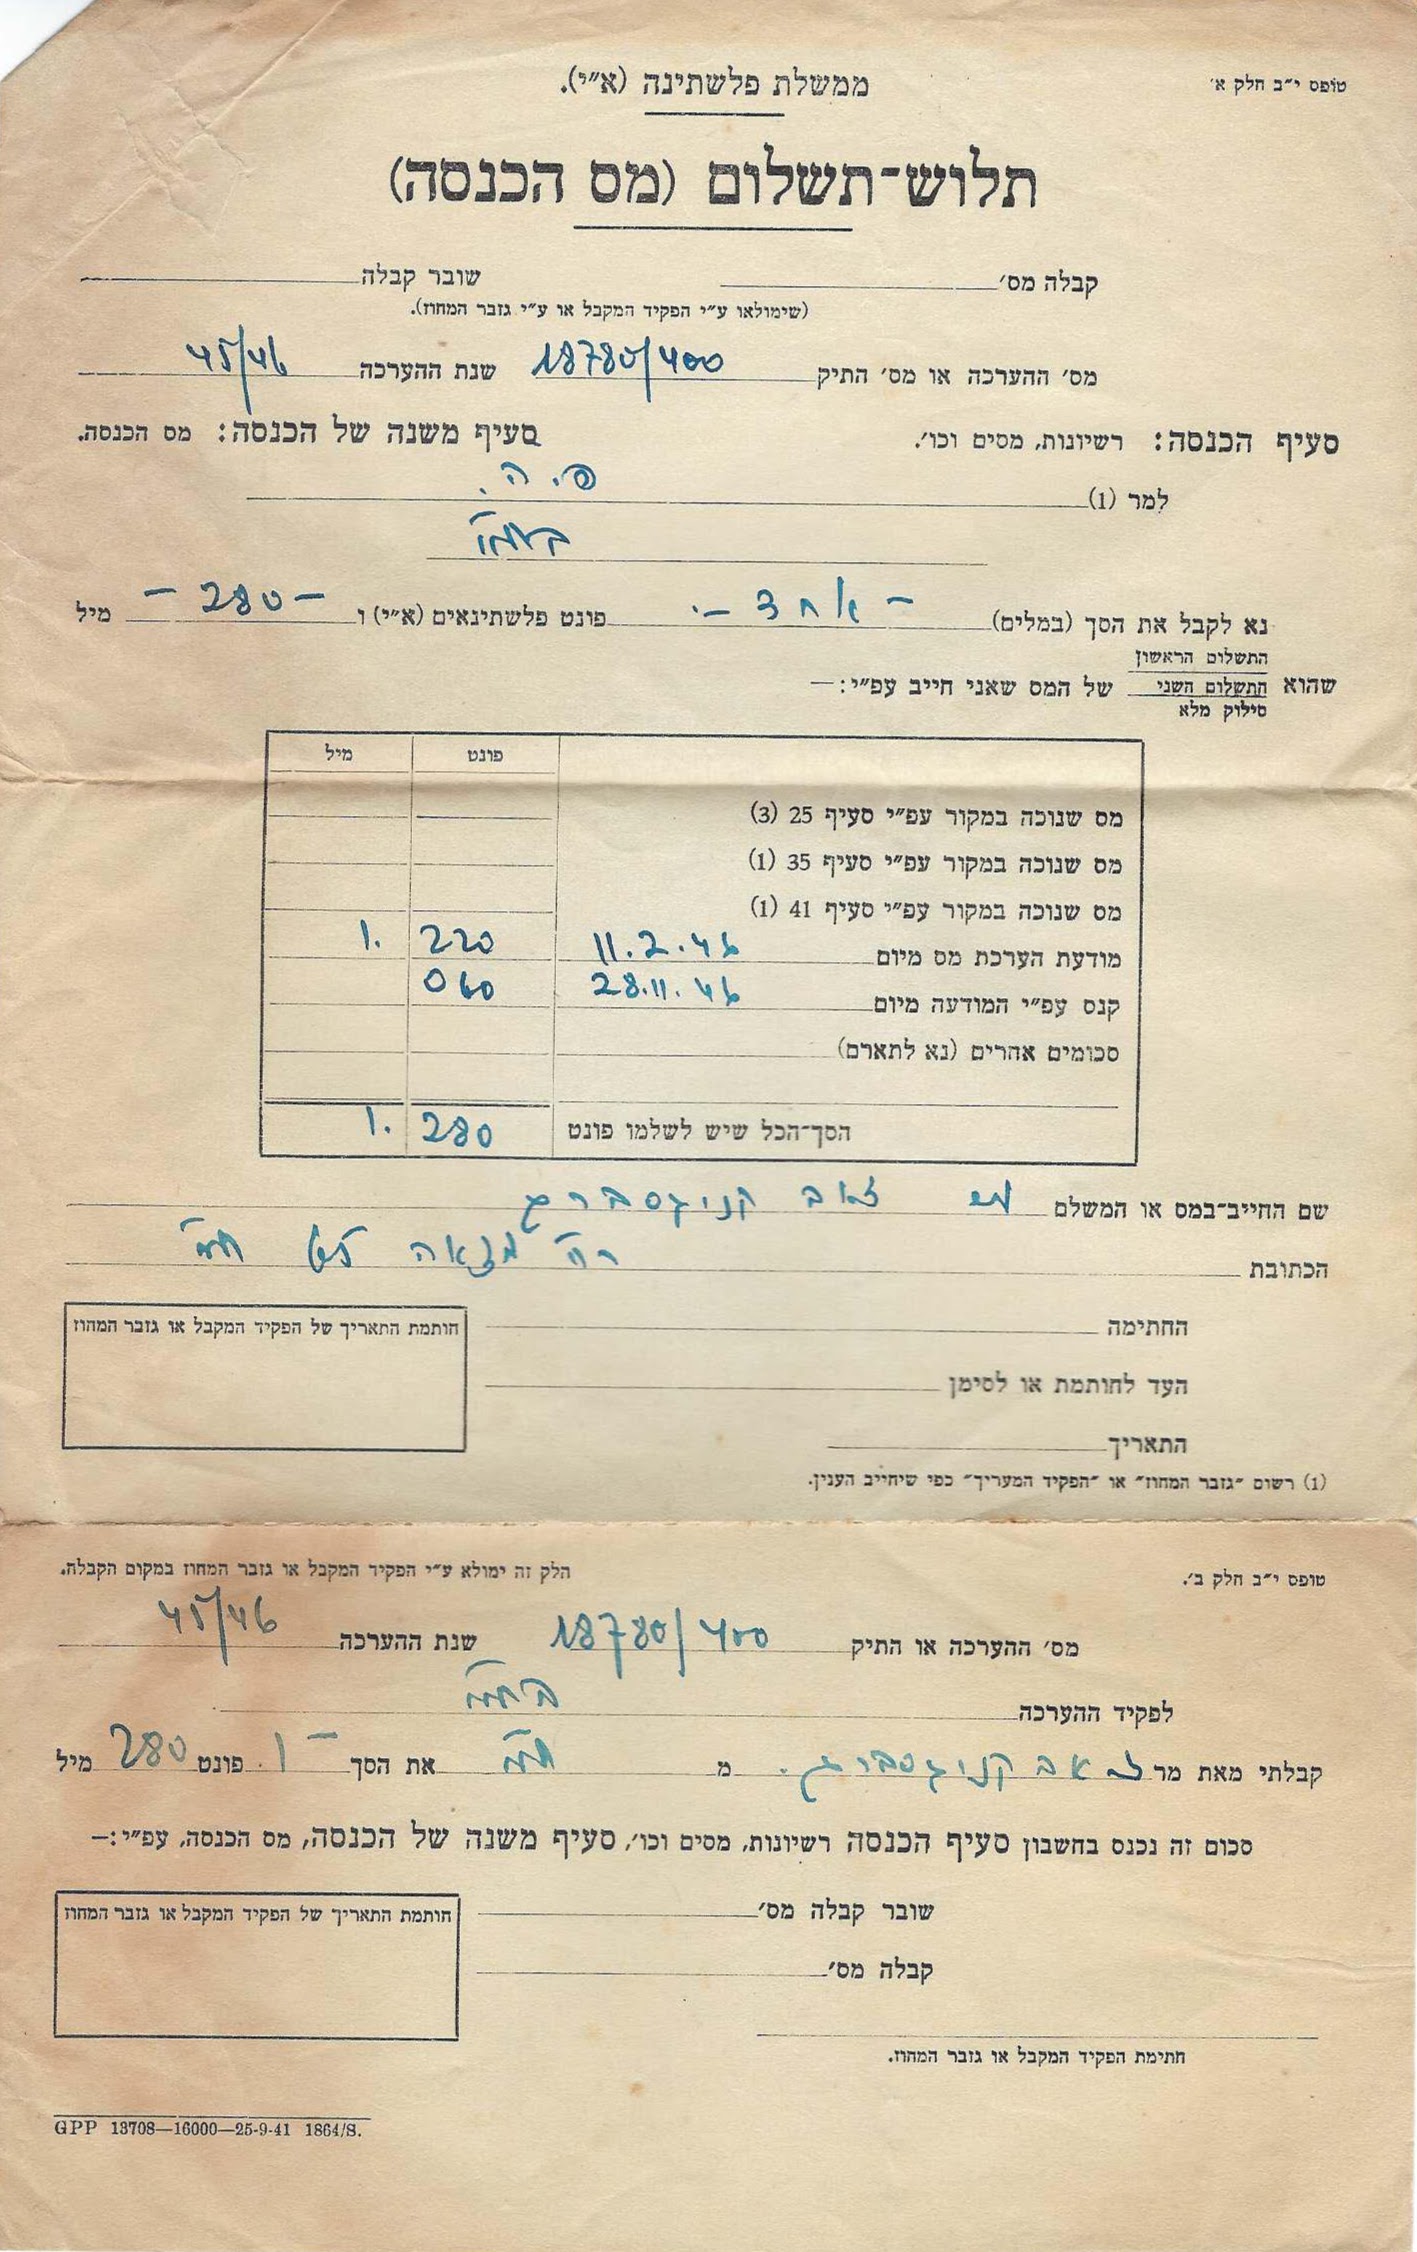 טופס י״ב חלק א׳
ממשלת פלשתינה (א״י).
תלוש־תשלום (מס הכנסה)
קבלה מס׳ שובר קבלה
(שימולאו ע״י הפקיד המקבל או ע״י גזבר המחוז).
מס׳ ההערכה או מס׳ התיק 18780/400 שנת ההערכה 45/46
סעיף הכנסה: רשיונות, מסים וכו׳. סעיף משנה של הכנסה: מס הכנסה.
למר (1) פ. ה.
נא לקבל את הסך (במלים) – אחד –. פונט פלשתינאים (א״י) ו – 280 – מיל
התשלום הראשון
שהוא התשלום השני של המס שאני חייב עפ״י:—
סילוק מלא
פונט מיל
מס שנוכה במקור עפ״י סעיף 25 (3)
מס שנוכה במקור עפ״י סעיף 35 (1)
מס שנוכה במקור עפ״י סעיף 41 (1)
מודעת הערכת מס מיום 11.2.46 220 1.
קנס עפ״י המודעה מיום 28.11.46 060
סכומים אחרים (נא לתארם)
הסך־הכל שיש לשלמו פונט 280 1.
שם החייב־במס או המשלם זאב קניגסברג
הכתובת רח׳ ת״א
החתימה
חותמת התאריך של הפקיד המקבל או גזבר המחוז
העד לחותמת או לסימן
התאריך
(1) רשום ״גזבר המחוז״ או ״הפקיד המעריך״ כפי שיחייב הענין.
טופס י״ב חלק ב׳. חלק זה ימולא ע״י הפקיד המקבל או גזבר המחוז במקום הקבלה.
מס׳ ההערכה או התיק 18780/400 שנת ההערכה 45/46
לפקיד ההערכה
קבלתי מאת מר זאב קניגסברג. מ ת״א את הסך 1. פונט 280 מיל
סכום זה נכנס בחשבון סעיף הכנסה רשיונות, מסים וכו׳, סעיף משנה של הכנסה, מס הכנסה, עפ״י:—
שובר קבלה מס׳
חותמת התאריך של הפקיד המקבל או גזבר המחוז
קבלה מס׳
חתימת הפקיד המקבל או גזבר המחוז.
GPP 13708—16000—25-9-41 1864/S.